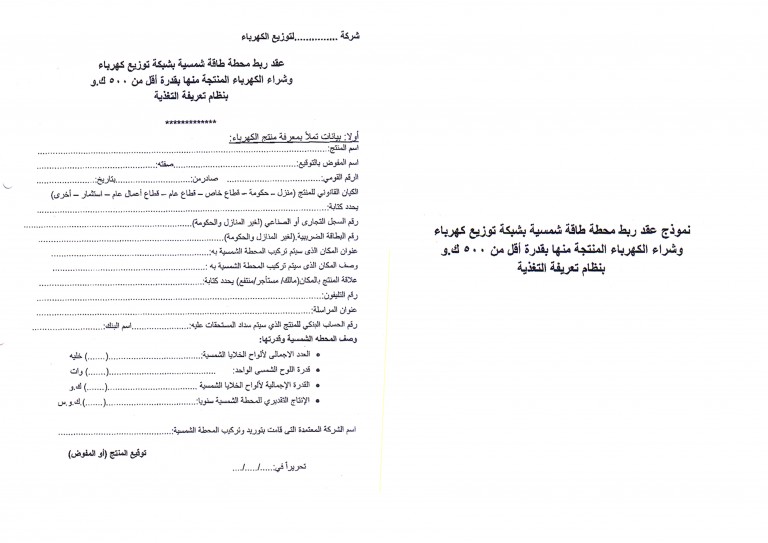 نموذج عقد ربط محطة طاقة شمسية بشبكة توزيع كهرباء
وشراء الكهرباء المنتجة منها بقدرة أقل من ٥٠٠ ك.و
بنظام تعريفة التغذية
شركة ...............لتوزيع الكهرباء
عقد ربط محطة طاقة شمسية بشبكة توزيع كهرباء
وشراء الكهرباء المنتجة منها بقدرة أقل من ٥٠٠ ك.و
بنظام تعريفة التغذية
*************
أولا: بيانات تملأ بمعرفة منتج الكهرباء:
اسم المنتج:................................................
اسم المفوض بالتوقيع:........................صفته:........................
الرقم القومي:........................ صادرمن:................بتاريخ:................
الكيان القانوني للمنتج (منزل – حكومة – قطاع خاص – قطاع عام – قطاع أعمال عام – استثمار – أخرى)
يحدد كتابة:................................................
رقم السجل التجارى أو الصناعي (لغير المنازل والحكومة)........................
رقم البطاقة الضريبية.(لغير المنازل والحكومة)........................
عنوان المكان الذى سيتم تركيب المحطة الشمسية به:........................
وصف المكان الذى سيتم تركيب المحطة الشمسية به :........................
علاقة المنتج بالمكان(مالك/ مستأجر/منتفع) يحدد كتابة:........................
رقم التليفون:................................................
عنوان المراسلة:................................................
رقم الحساب البنكي للمنتج الذي سيتم سداد المستحقات عليه:................اسم البنك:................
وصف المحطه الشمسية وقدرتها:
• العدد الاجمالى لألواح الخلايا الشمسية:........................(......) خليه
• قدرة اللوح الشمسى الواحد: ........................(......) وات
• القدرة الإجمالية لألواح الخلايا الشمسية ........................(......) ك.و
• الإنتاج التقديري للمحطة الشمسية سنويا:........................(......).ك.و.س
اسم الشركة المعتمدة التى قامت بتوريد وتركيب المحطة الشمسية:........................
توقيع المنتج (أو المفوض)
تحريراً في:...../...../....